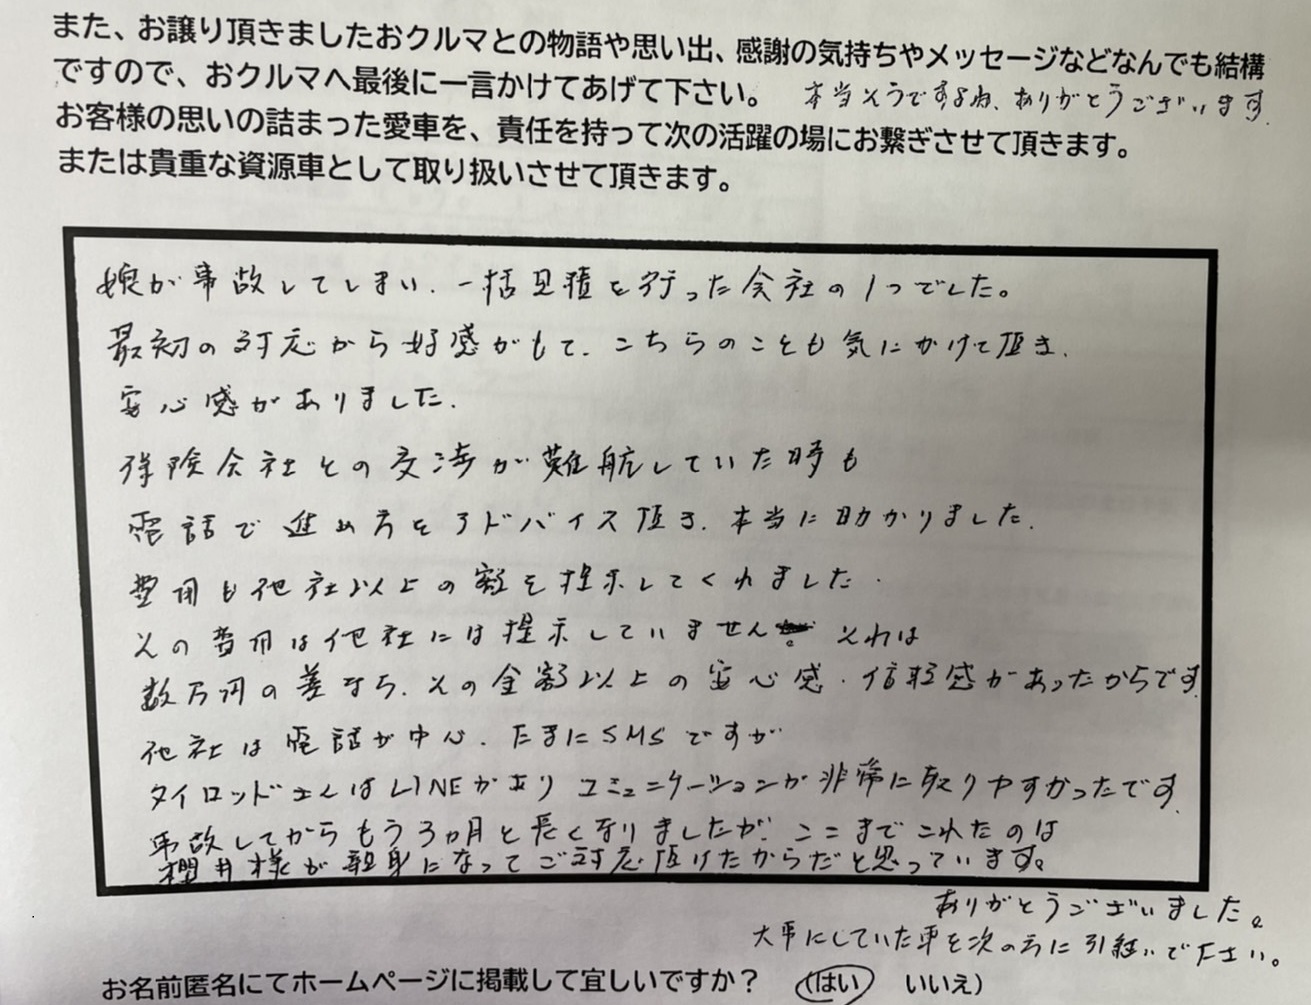 また、お譲り頂きましたおクルマとの物語や思い出、感謝の気持ちやメッセージなどなんでも結構
ですので、おクルマへ最後に一言かけてあげて下さい。 本当そうですよね、ありがとうございます。
お客様の思いの詰まった愛車を、責任を持って次の活躍の場にお繋ぎさせて頂きます。
または貴重な資源車として取り扱いさせて頂きます。
娘が事故してしまい、一括見積を行った会社の1つでした。
最初の対応から好感がもて、こちらのことも気にかけて頂き、
安心感がありました。
保険会社との交渉が難航していた時も
電話で進め方をアドバイス頂き、本当に助かりました。
費用も他社以上の額を提示してくれました。
その費用は他社には提示していません。それは
数万円の差なら、その金額以上の安心感・信頼感があったからです。
他社は電話が中心、たまにSMSですが
タイロッドさんはLINEがありコミュニケーションが非常に取りやすかったです。
事故してからもう3ヵ月と長くなりましたが、ここまでこれたのは
櫻井様が親身になってご対応頂けたからだと思っています。
ありがとうございました。
大事にしていた車を次の方に引継いで下さい。
お名前匿名にてホームページに掲載して宜しいですか？ (はい いいえ)